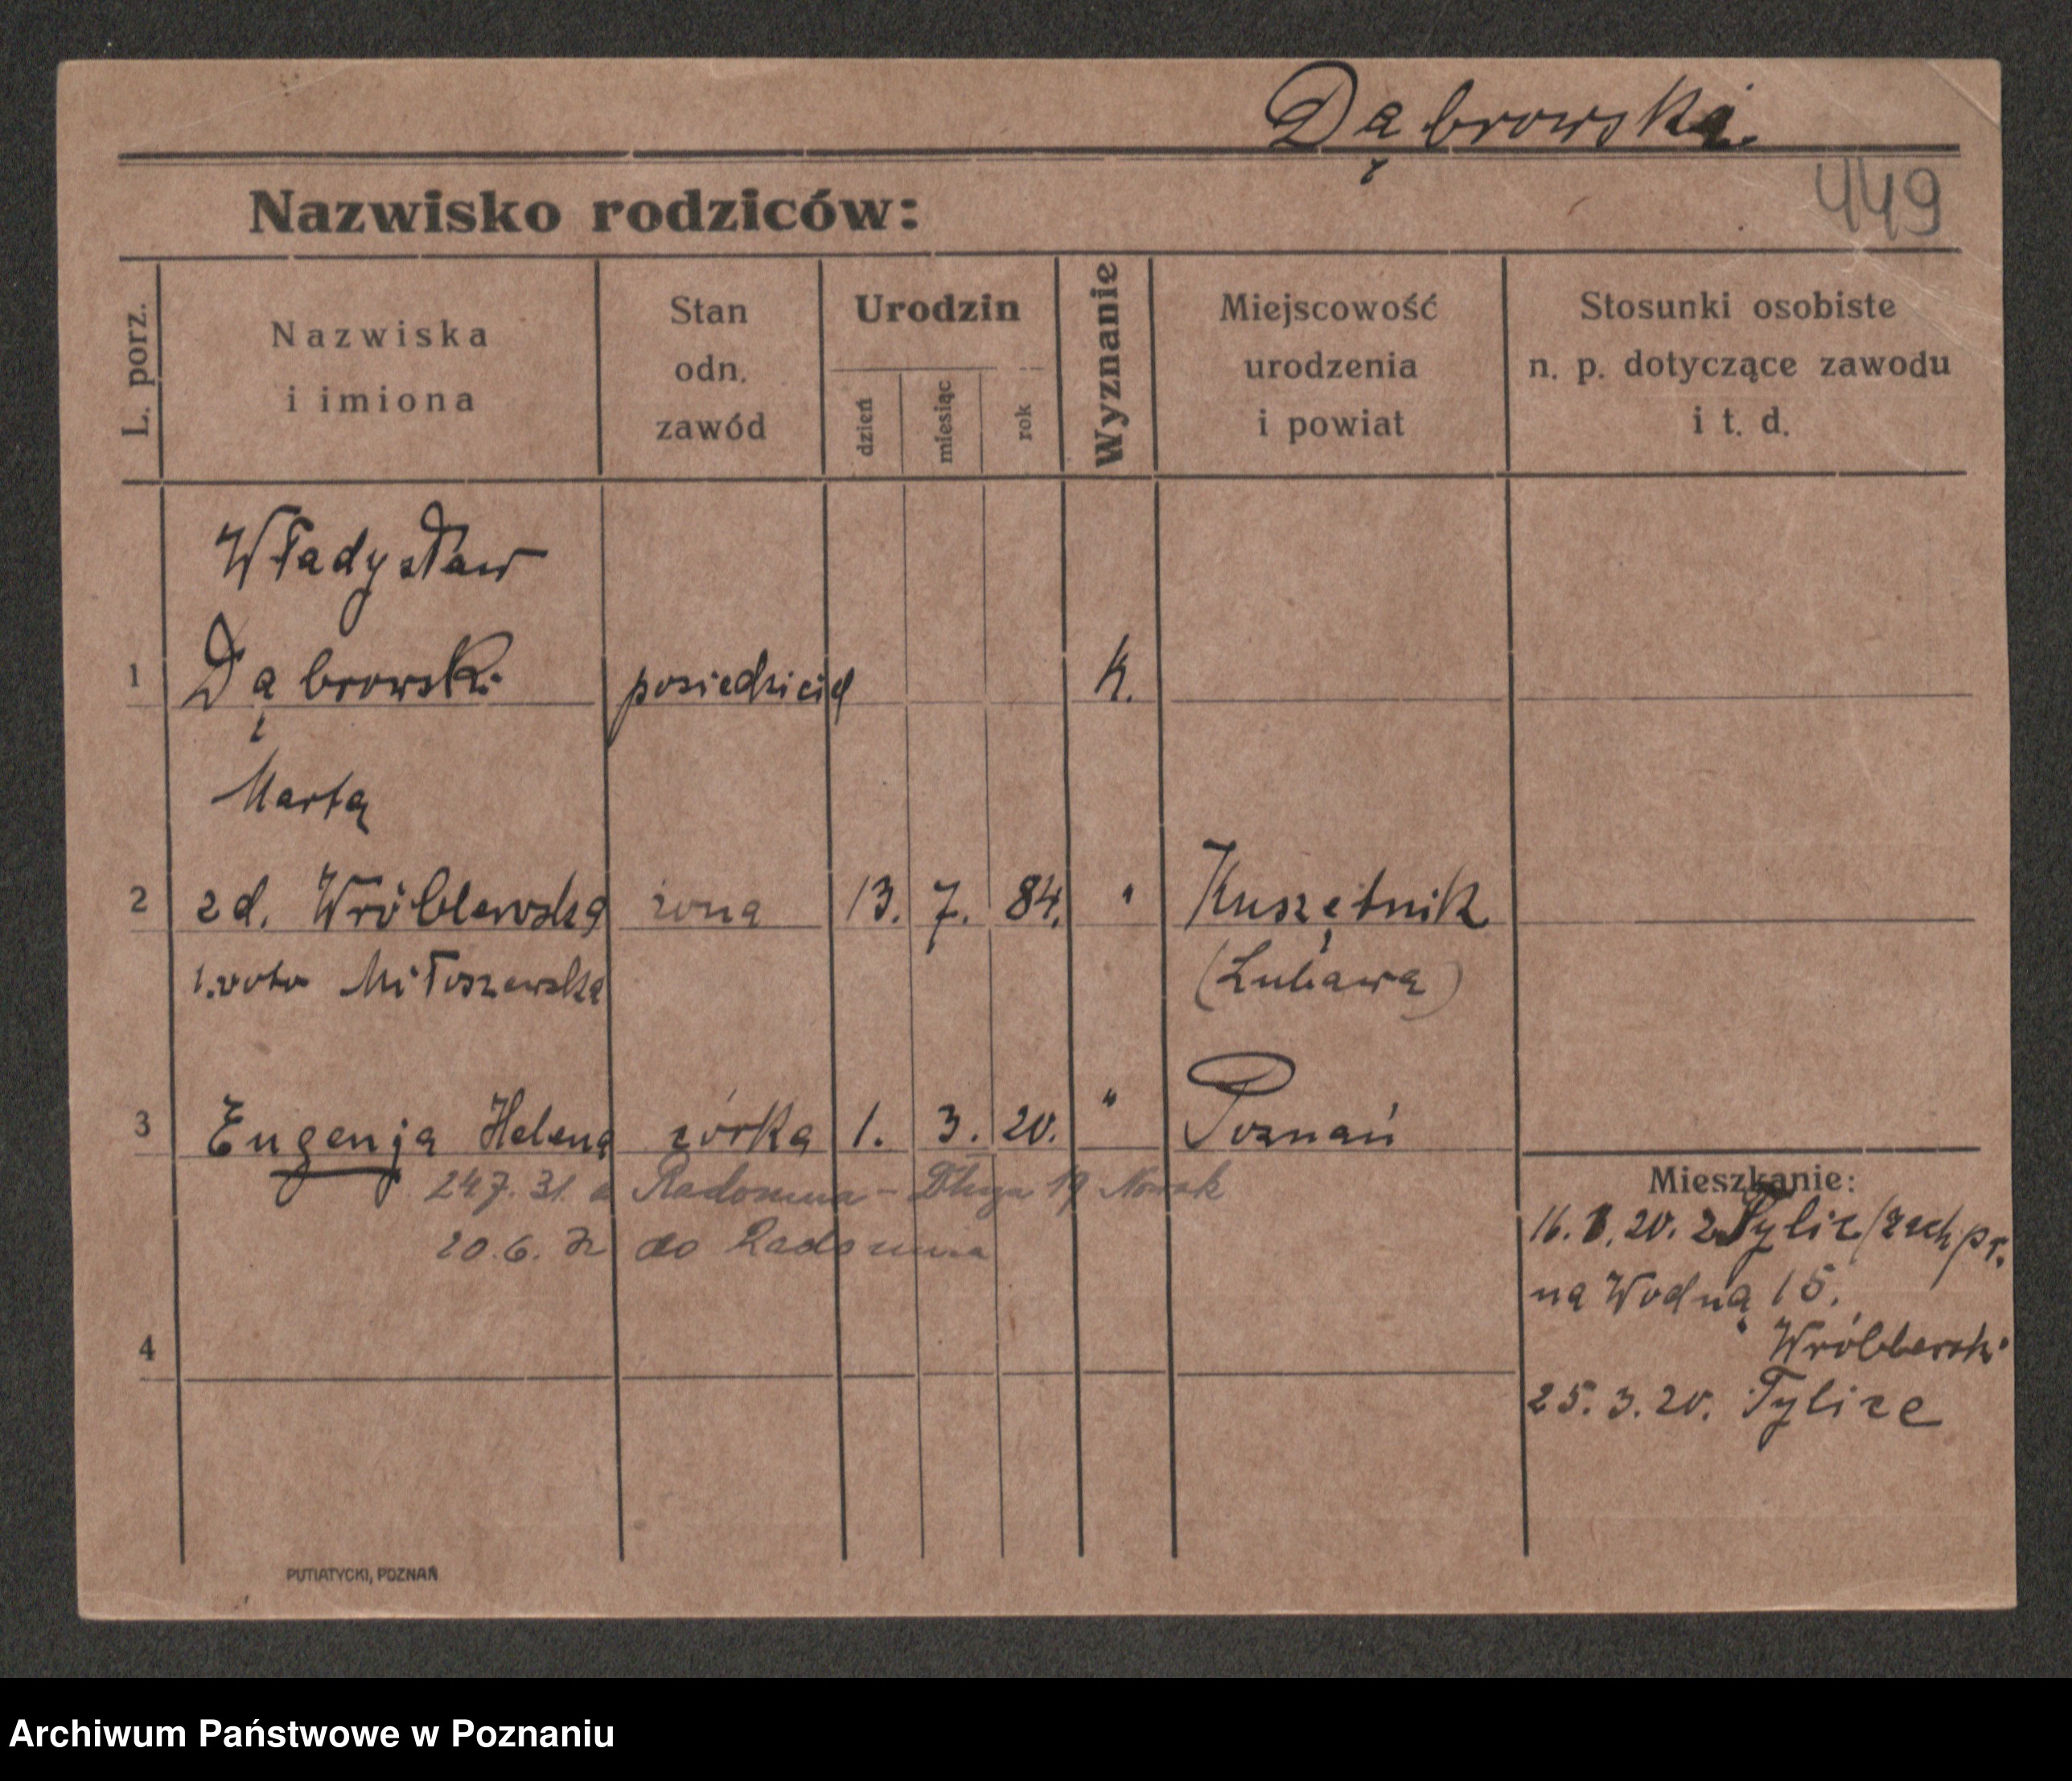 Dąbrowska.
449
Nazwisko rodziców:
L. porz.
Nazwiska
i imiona
Stan
odn.
zawód
Urodzin
dzień
miesiąc
rok
Wyznanie
Miejscowość
urodzenia
i powiat
Stosunki osobiste
n. p. dotyczące zawodu
i t. d.
Władysław
1 Dąbrowski posiedziciel K.
Marta
2 zd. Wróblewska żona 13. 7. 84. " Kurzętnik
1.voto Miłoszewska (Lubawa)
3 Eugenja Helena córka 1. 3. 20. " Poznań
24.7.31. z Radomna - Długa 19 Nowak
20.6. do Radomna
Mieszkanie:
16. 20. z Tylic/zach pr.
na Wodną 15.
Wróblewski
25. 3. 20. Tylice
4
PUTIATYCKI, POZNAŃ
Archiwum Państwowe w Poznaniu